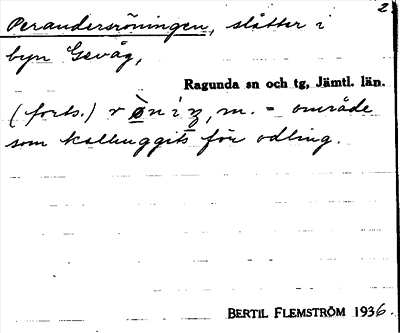 2
Perandersröningen, slåtter i
byn Gevåg,
Ragunda sn och tg, Jämtl. län.
(forts.) m. = område
som kalhuggits för odling.
BERTIL FLEMSTRÖM 1936.